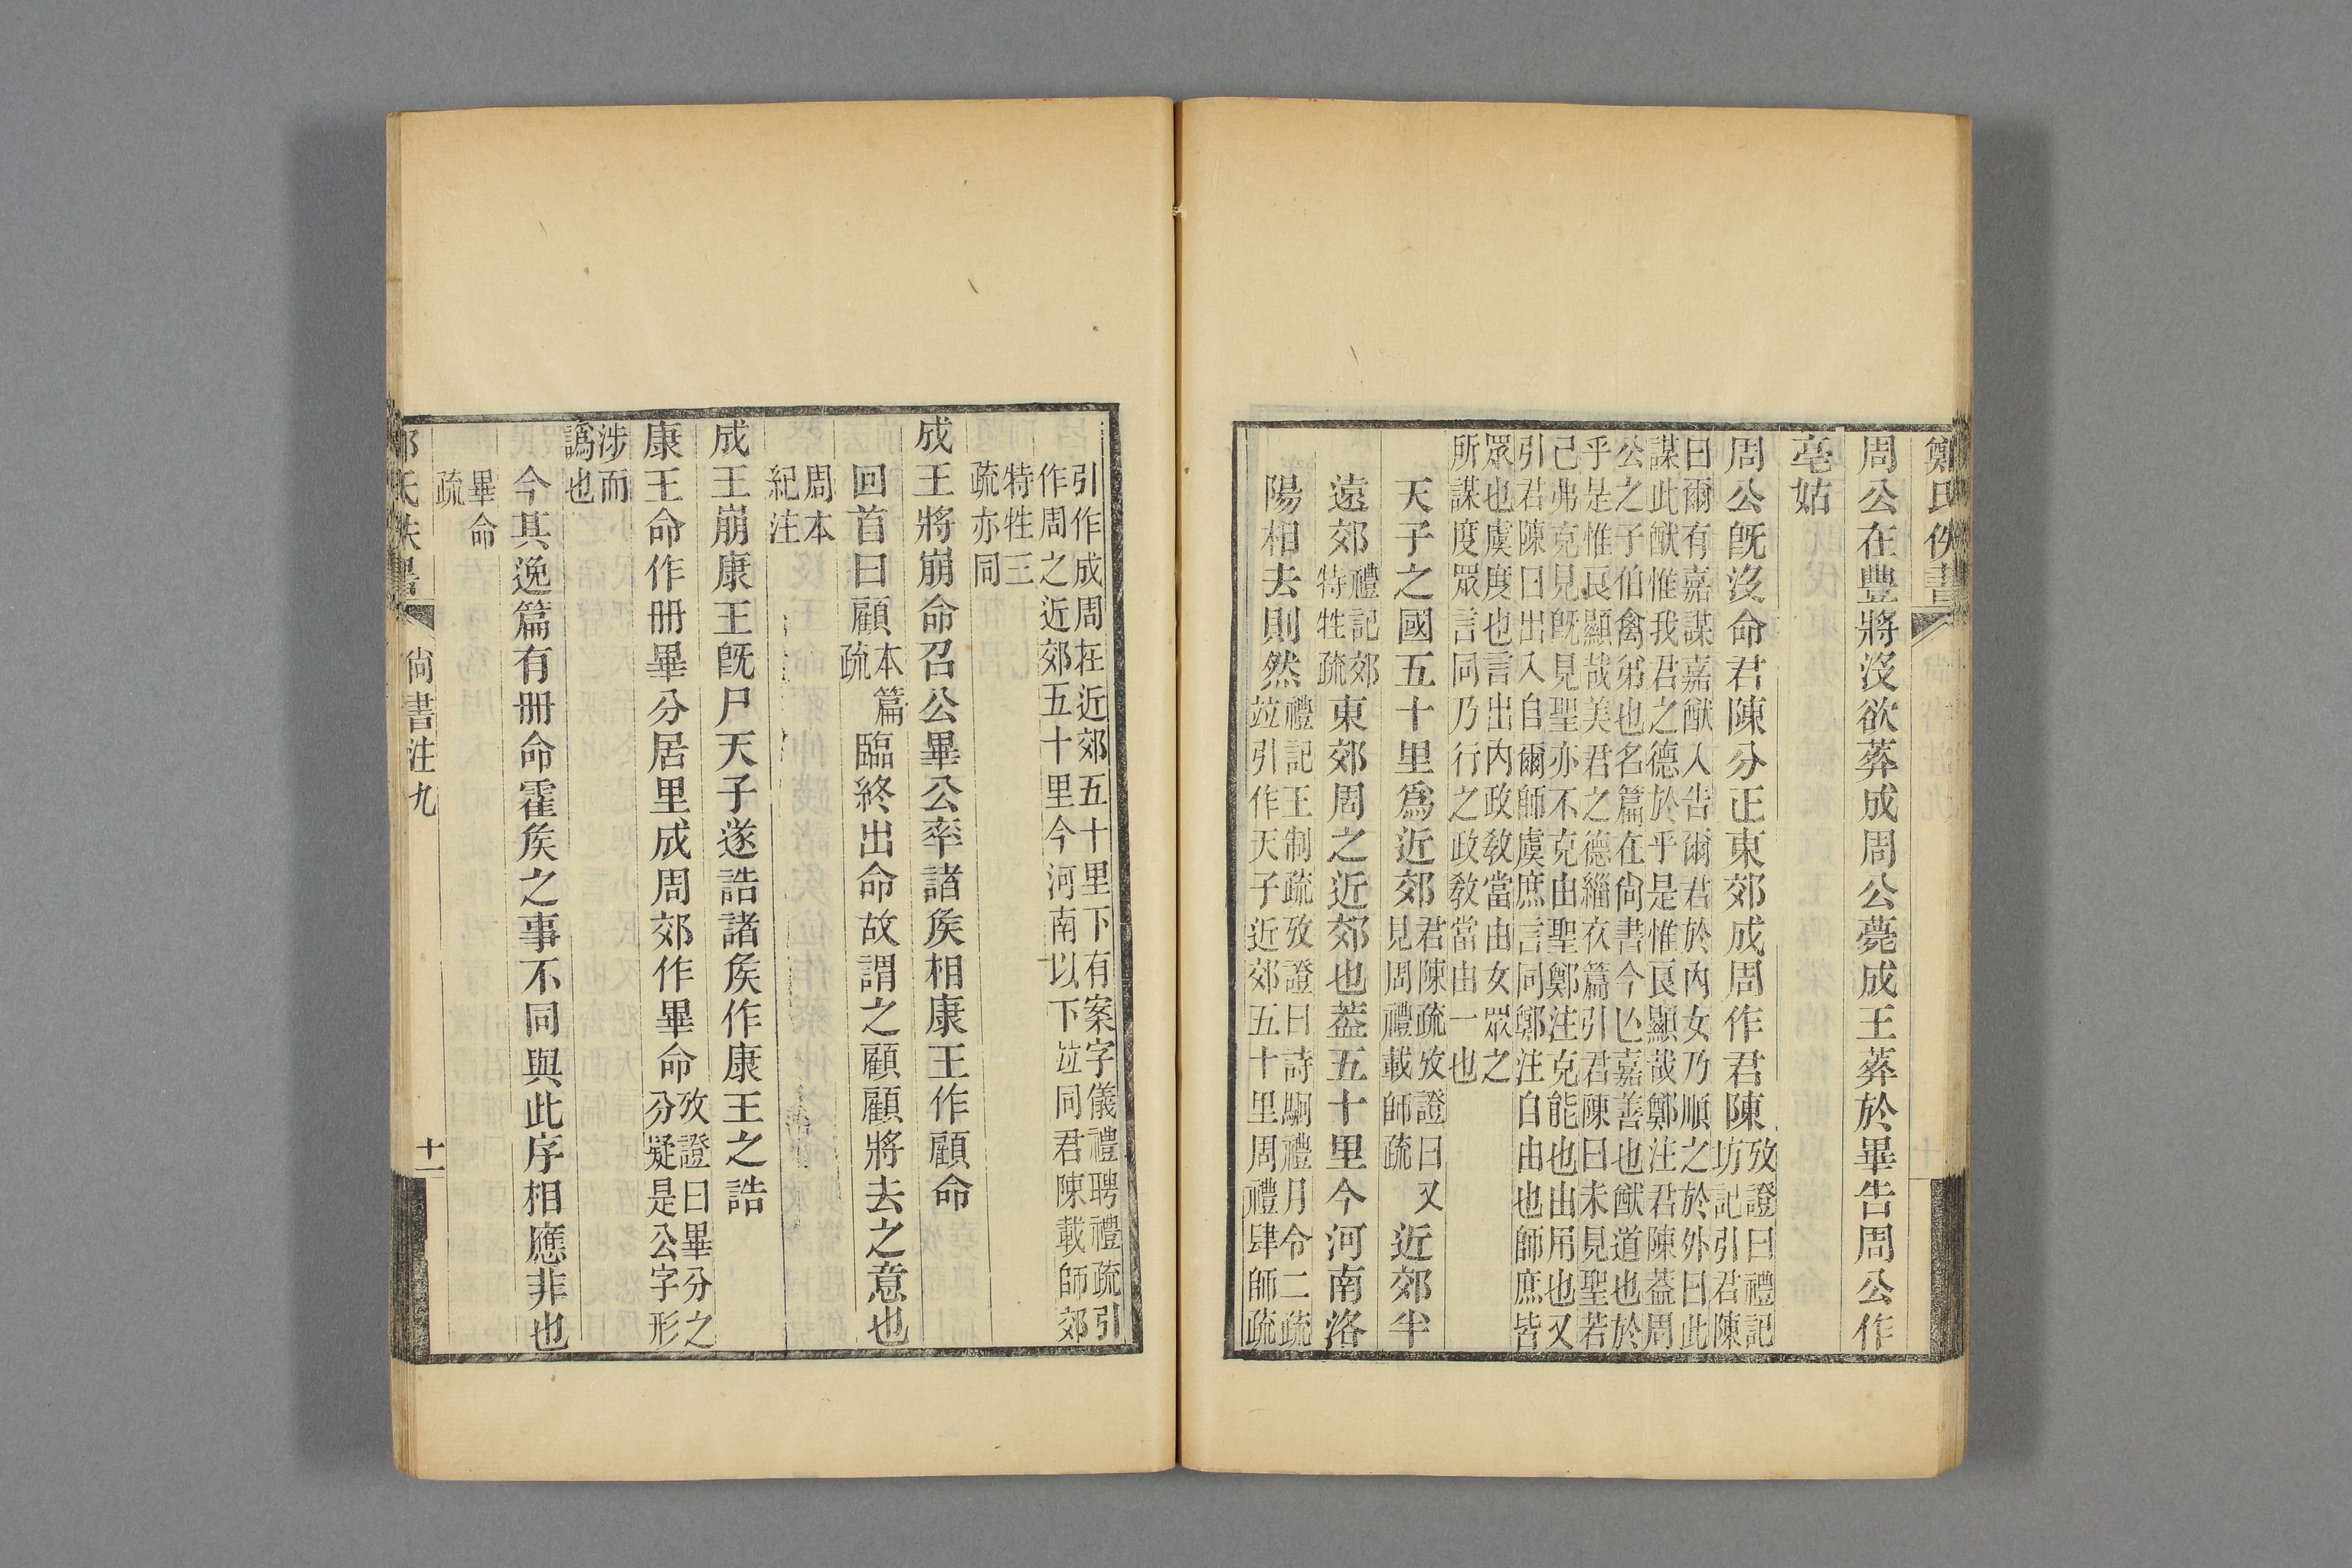 鄭氏佚書
周公在豐將沒欲葬成周公薨成王葬於畢告周公作
亳姑
周公旣沒命君陳分正東郊成周作君陳
攷證曰禮記
坊記引君陳
曰爾有嘉謀嘉猷入告爾君於內女乃順之於外曰此
謀此猷惟我君之德於乎是惟良顯哉鄭注君陳蓋周
公之子伯禽弟也名篇在尙書今亾嘉善也猷道也於
乎是惟良顯哉美君之德緇衣篇引君陳曰未見聖若
己弗克見旣見聖亦不克由聖鄭注克能也由用也又
引君陳曰出入自爾師虞庶言同鄭注自由也師庶皆
眾也虞度也言出內政敎當由女眾之
所謀度眾言同乃行之政敎當由一也
天子之國五十里爲近郊
君陳疏攷證曰又
見周禮載師疏
近郊半
遠郊
禮記郊
特牲疏
東郊周之近郊也葢五十里今河南洛
陽相去則然
禮記王制疏攷證曰詩駉禮月令二疏
竝引作天子近郊五十里周禮肆師疏
引作成周在近郊五十里下有案字儀禮聘禮疏引
作周之近郊五十里今河南以下竝同君陳載師郊
特牲三
疏亦同
成王將崩命召公畢公率諸矦相康王作顧命
回首曰顧
本篇
疏
臨終出命故謂之顧顧將去之意也
周本
紀注
成王崩康王旣尸天子遂誥諸矦作康王之誥
康王命作冊畢分居里成周郊作畢命
攷證曰畢分之
分疑是公字形
涉而
譌也
今其逸篇有冊命霍矦之事不同與此序相應非也
畢命
疏
尙書注九
十一